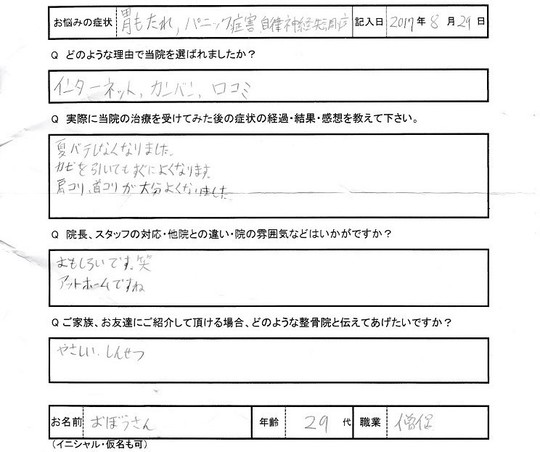 お悩みの症状 胃もたれ, パニック症害 自律神経失調症 記入日 2017年 8月29日
Q どのような理由で当院を選ばれましたか？
インターネット, カンバン, 口コミ
Q 実際に当院の治療を受けてみた後の症状の経過・結果・感想を教えて下さい。
夏バテしなくなりました。
カゼを引いてもすぐによくなります
肩コリ、首コリが大分よくなりました
Q 院長、スタッフの対応・他院との違い・院の雰囲気などはいかがですか？
おもしろいです。笑
アットホームですね
Q ご家族、お友達にご紹介して頂ける場合、どのような整骨院と伝えてあげたいですか？
やさしい. しんせつ
お名前 おぼうさん 年齢 29 代 職業 僧侶
(イニシャル・仮名も可)